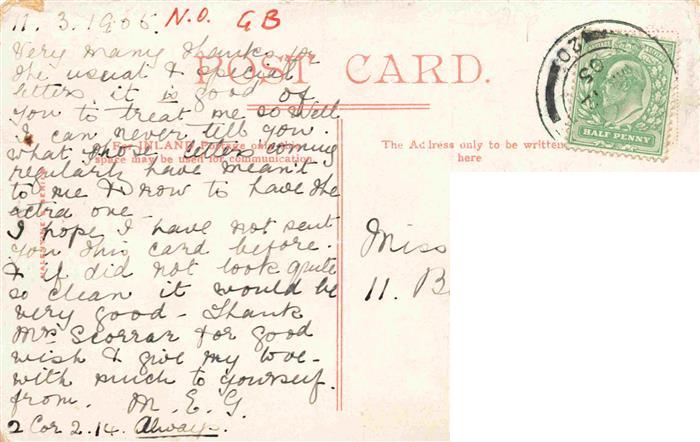 11.3.1905. N.O. GB
POST CARD.
Very many thanks for
the usual & special
letters it is good of
you to treat me so well
I can never tell you.
what your letters coming
regularly have meant
to me & now to have the
extra one.
I hope I have not sent
you this card before.
& if did not look quite
so clean it would be
very good - Thank
Mrs for good
wish & give my love -
with much to yourself.
from. M. E. G.
2 Cor 2.14. Always.
For INLAND Postage only this
space may be used for communication.
The Address only to be written
here
HALF PENNY
Miss
11. B